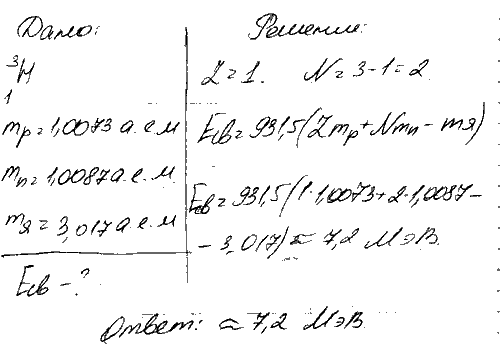 Дано:
³₁H
mp = 1,0073 а.е.м
mn = 1,0087 а.е.м.
mя = 3,017 а.е.м
Eсв - ?
Решение:
Z = 1. N = 3 - 1 = 2
Eсв = 931,5 (Zmp + Nmn - mя)
Eсв = 931,5 (1·1,0073 + 2·1,0087 -
- 3,017) ≈ 7,2 МэВ.
Ответ: ≈ 7,2 МэВ